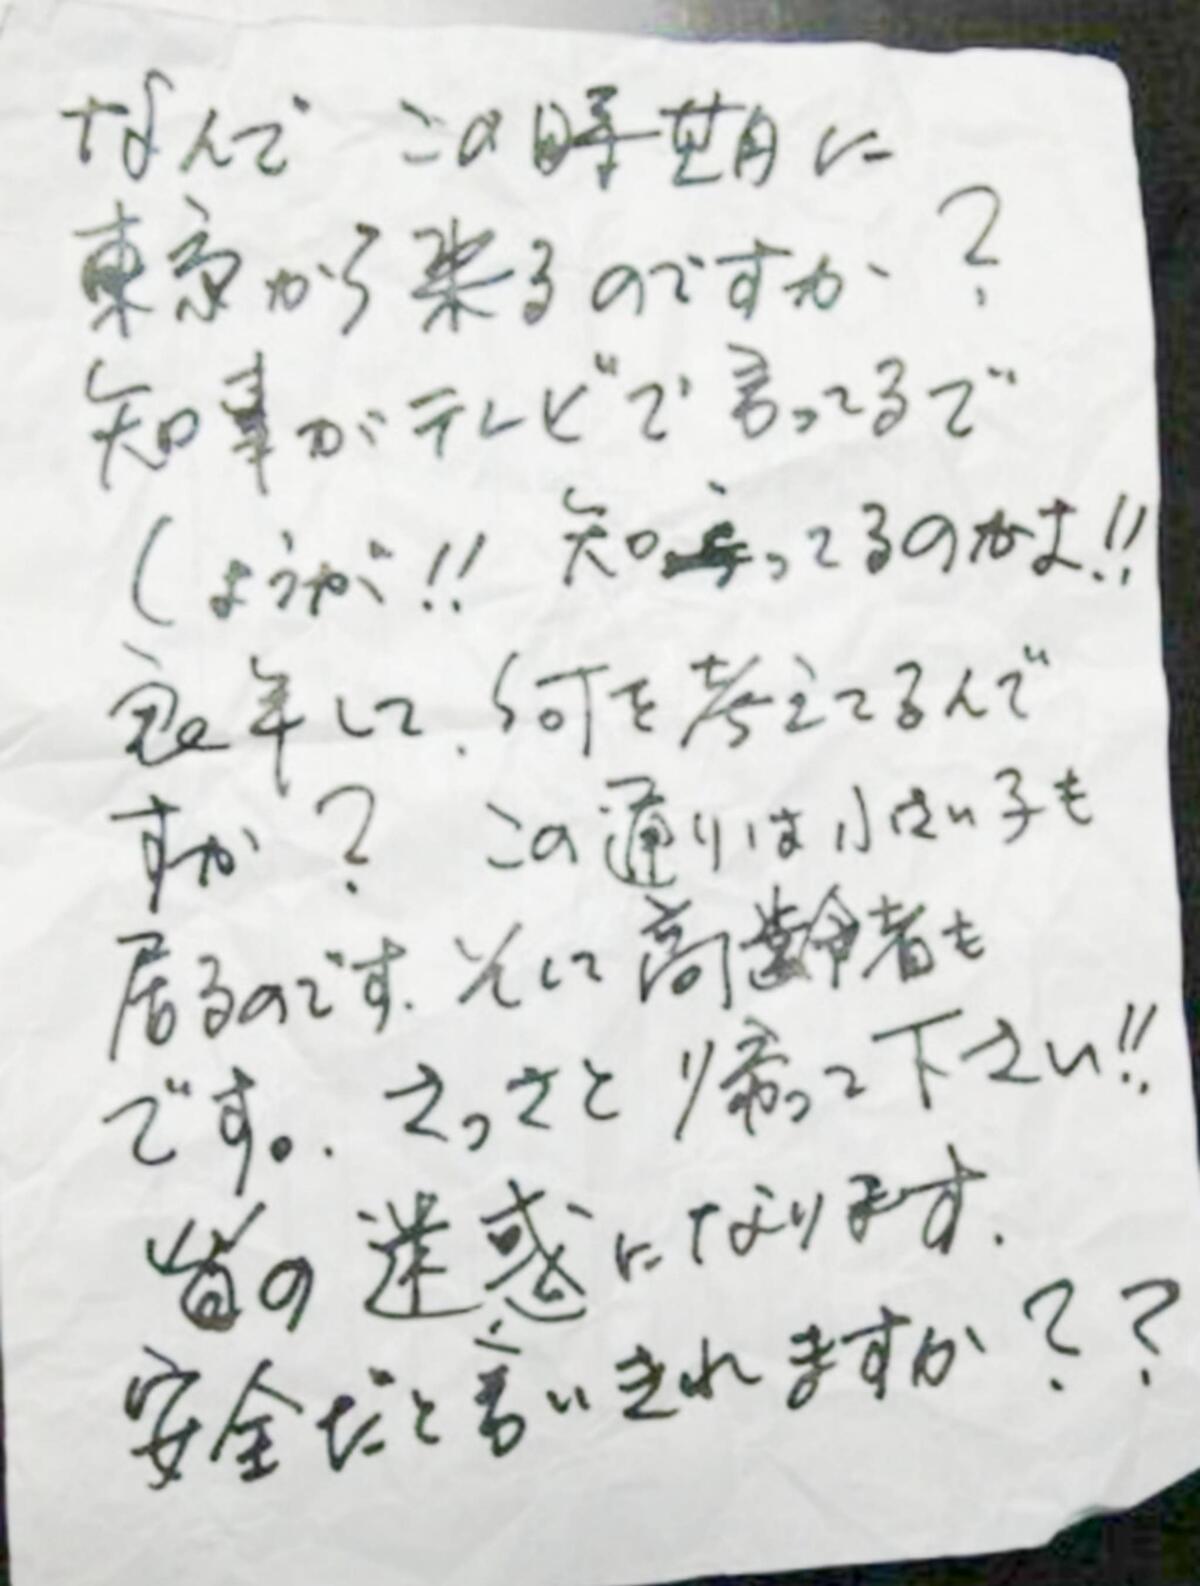 なんで この時期に
東京から来るのですか?
知事がテレビで言ってるで
しょうが!! 知ってるのかよ!!
良い年して、何を考えてるんで
すか? この通りは小さい子も
居るのです、そして高齢者も
です。さっさと帰って下さい!!
皆の迷惑になります、
安全だと言いきれますか??